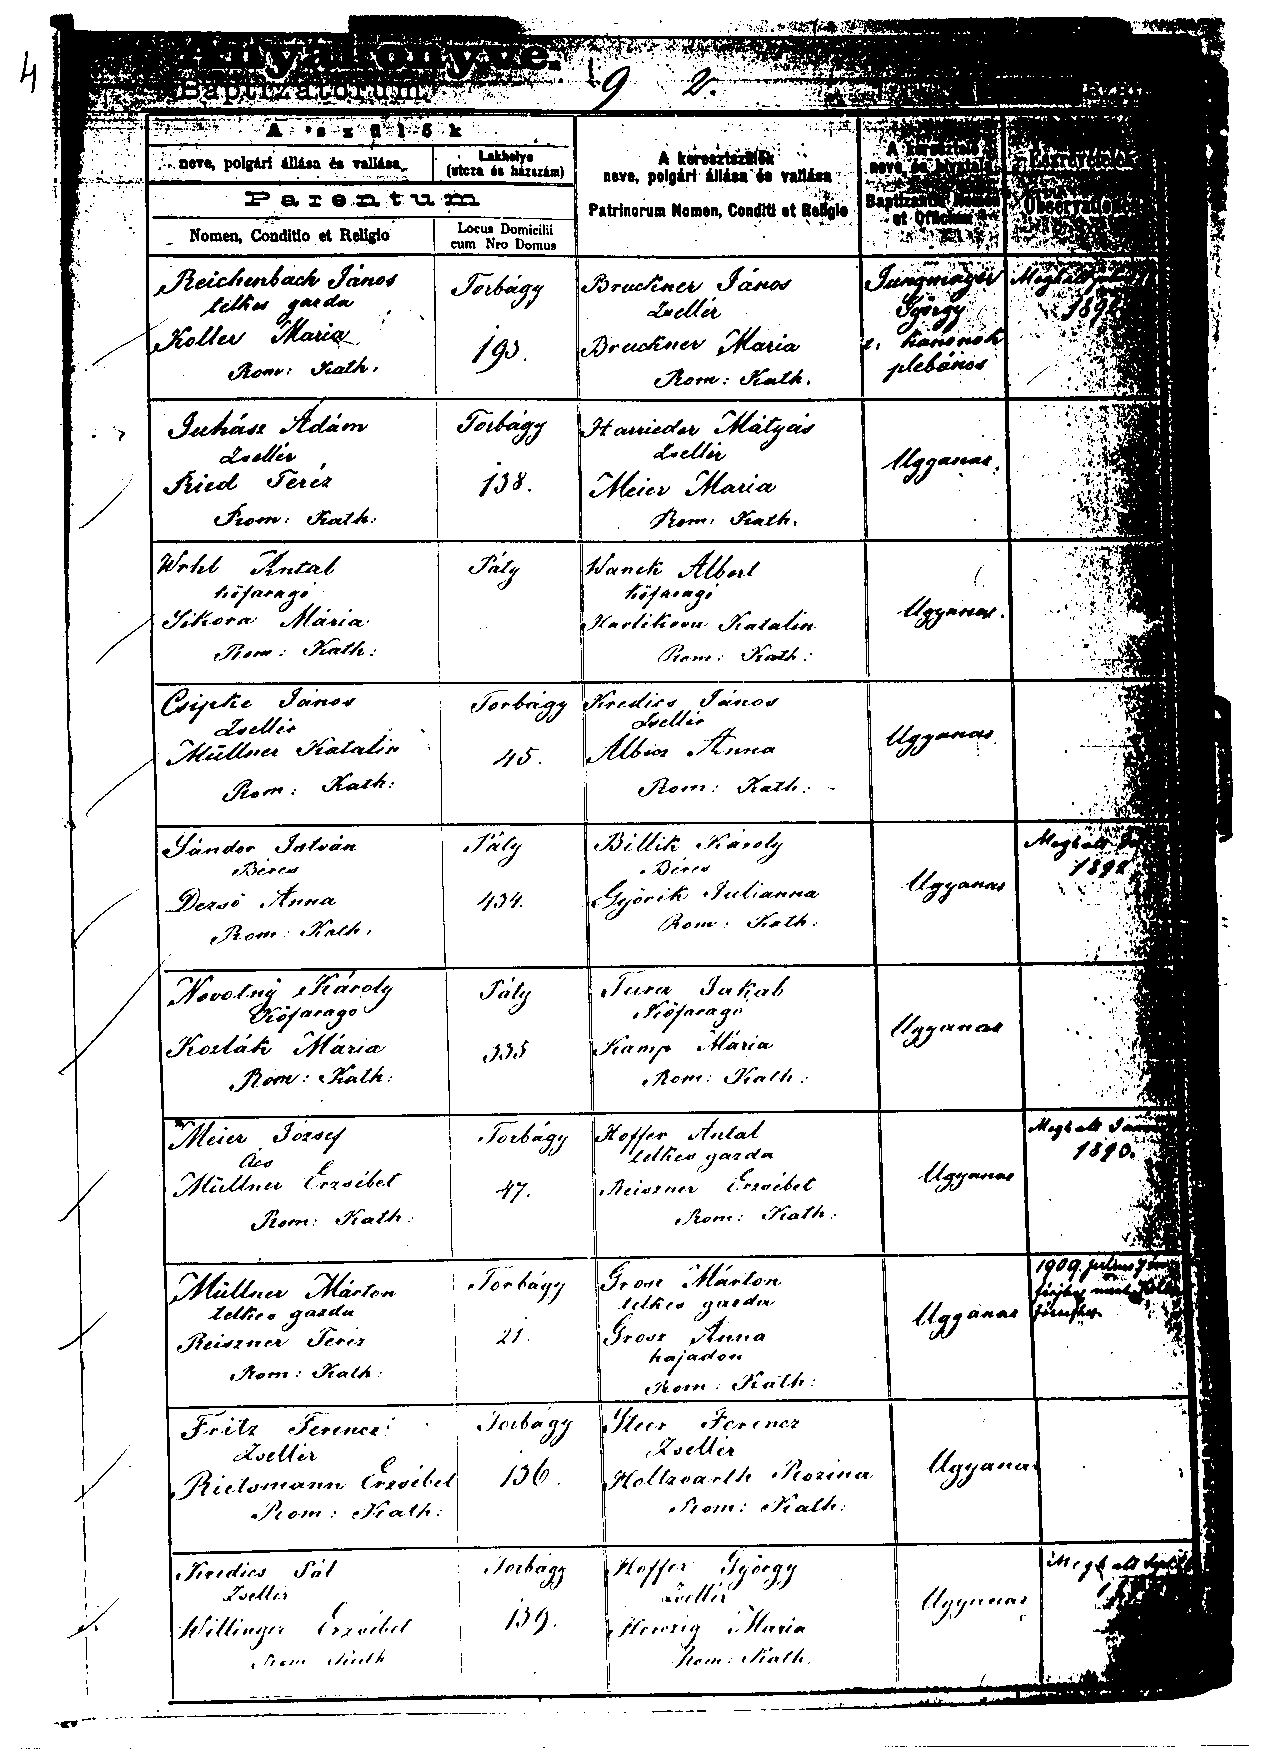 4
Anyakönyve.
Baptizatorum.
19 2.
A szülők
neve, polgári állása és vallása
Lakhelye
(utcza és házszám)
Parentum
Nomen, Conditio et Religio
Locus Domicilii
cum Nro Domus
A keresztszülők
neve, polgári állása és vallása
Patrinorum Nomen, Conditi et Religio
A keresztelő
neve és hivatala
Baptizantis Nomen
et Officium
Észrevételek
Observationes
Reichenbach János
telkes gazda
Koller Maria
Rom: Kath.
Torbágy
193.
Bruckner János
Zsellér
Bruckner Maria
Rom: Kath.
Jungmayer
György
kanonok
plebános
Meghalt
189
Juhász Ádám
Zsellér
Ried Teréz
Rom: Kath:
Torbágy
138.
Harrieder Mátyás
Zsellér
Meier Maria
Rom: Kath.
Ugyanas.
Wrhl Antal
kőfaragó
Sikora Mária
Rom: Kath:
Pály
Wanek Albert
kőfaragó
Havlikova Katalin
Rom: Kath:
Ugyanas.
Csipke János
Zsellér
Müllner Katalin
Rom: Kath:
Torbágy
45.
Kredics János
Zsellér
Albecz Anna
Rom: Kath:
Ugyanas
Sándor István
Béres
Dezső Anna
Rom: Kath.
Pály
434.
Billik Károly
Béres
Győrik Julianna
Rom: Kath:
Ugyanas
Meghalt
189
Novotný Károly
Kőfaragó
Kozlák Mária
Rom: Kath:
Pály
335
Tura Jakab
Kőfaragó
Kamp Mária
Rom: Kath:
Ugyanas
Meier József
Ács
Müllner Erzsébet
Rom: Kath:
Torbágy
47.
Hoffer Antal
telkes gazda
Reiszner Erzsébet
Rom: Kath:
Ugyanas
Meghalt
1890.
Müllner Márton
telkes gazda
Reiszner Teréz
Rom: Kath:
Torbágy
21.
Grosz Márton
telkes gazda
Grosz Anna
hajadon
Rom: Kath:
Ugyanas
1909. julius
férjhez ment
Fritz Ferencz
Zsellér
Rietsmann Erzsébet
Rom: Kath:
Torbágy
136.
Steer Ferencz
Zsellér
Holtzvarth Rozina
Rom: Kath:
Ugyanas
Kredics Pál
Zsellér
Willinger Erzsébet
Rom Kath
Torbágy
139.
Hoffer György
Zsellér
Herczig Maria
Rom: Kath.
Ugyanas
Meghalt